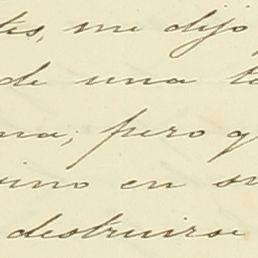 tes, me dijo
de una ta
ma; pero q
vino en su
destruirse